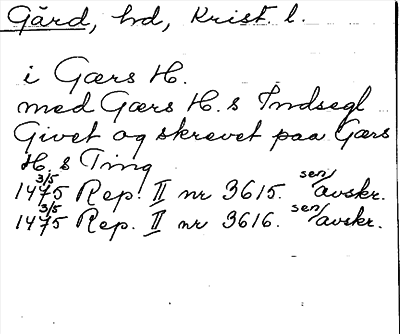 Gärd, hd, Krist. l.
i Gærs H.
med Gærs H.s Indsegl
Givet og skrevet paa Gærs
H.s Ting
1475 3/5 Rep. II nr 3615. sen/avskr.
1475 3/5 Rep. II nr 3616. sen/avskr.